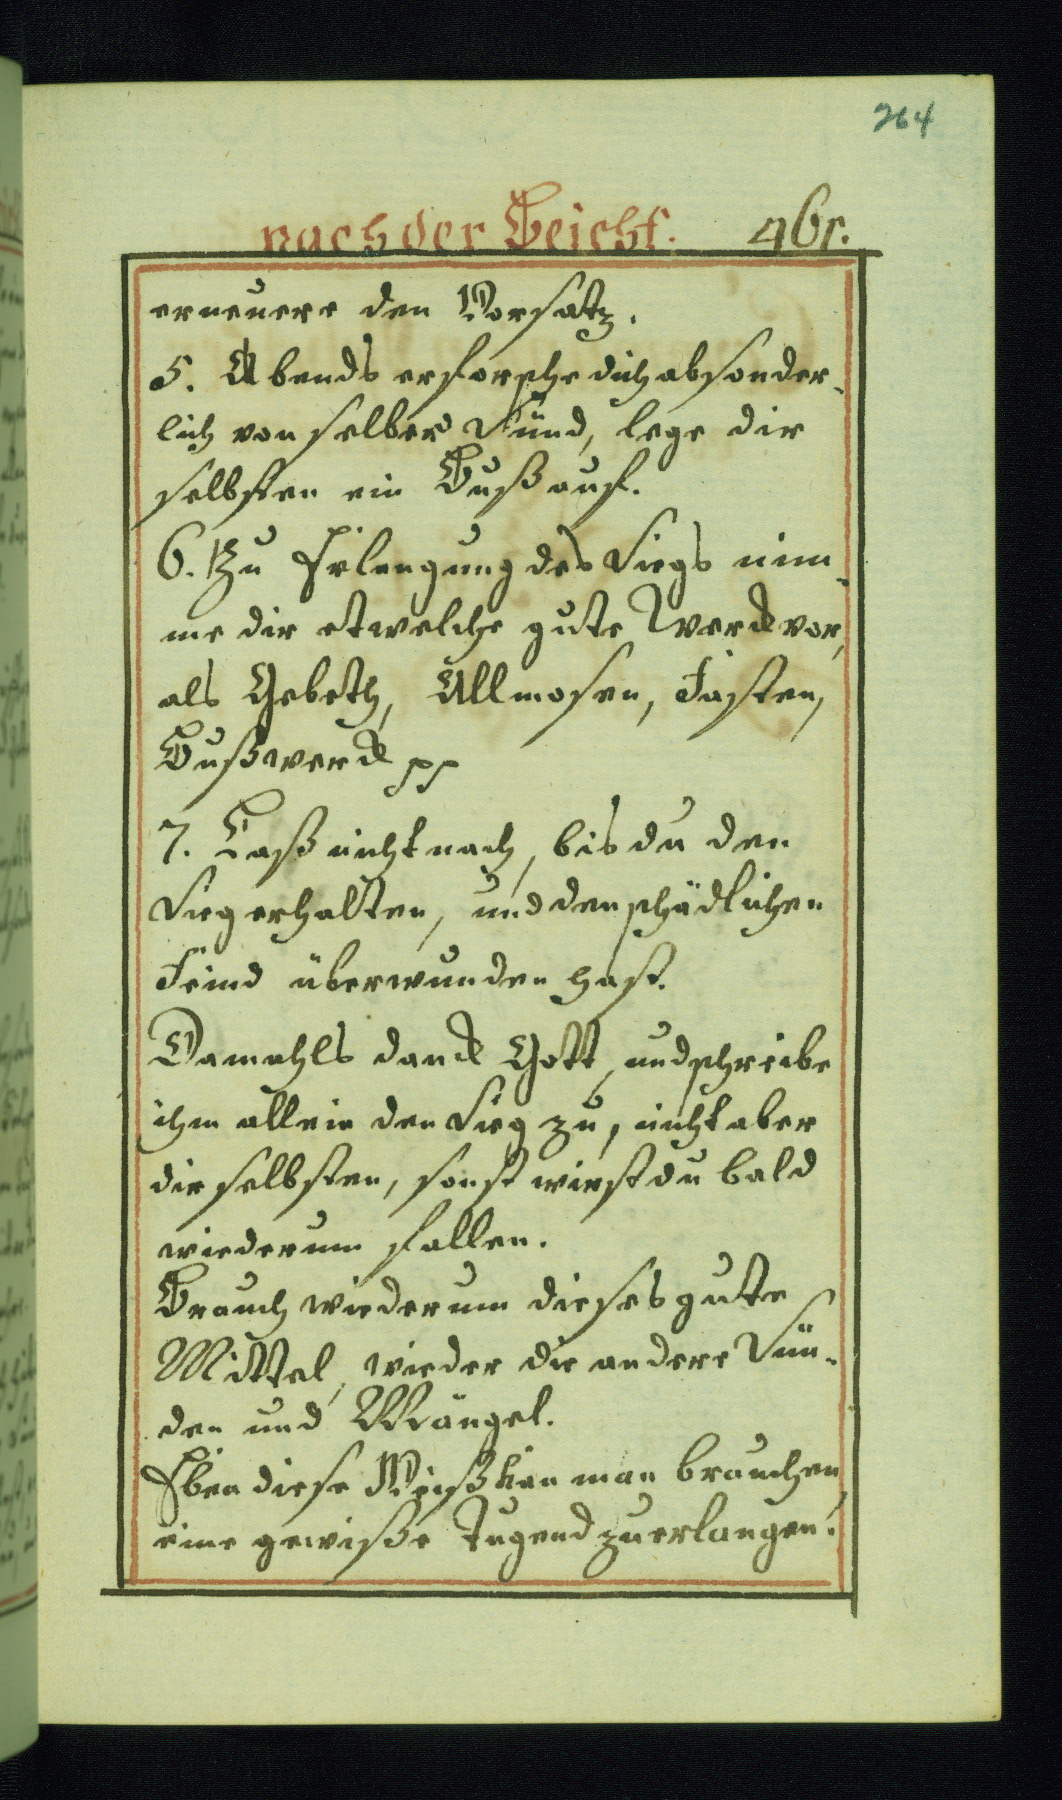 264
nach der Beicht. 461.
erneuere den Vorsatz.
5. Abends erforsche dich absonder-
lich von selber Sünd, lege dir
selbsten ein Buß auf.
6. Zu Erlangung des Siegs nim-
me dir etwelche gute Werck vor,
als Gebeth, Allmosen, Fasten,
Bußwerck pp
7. Laß nicht nach, bis du den
Sieg erhalten, und den schädlichen
Feind überwunden hast.
Damahls danck Gott, und schreibe
ihm allein den Sieg zu, nicht aber
dir selbsten, sonst wirst du bald
wiederum fallen.
Brauch wiederum dieses gute
Mittel, wieder die andere Sün-
den und Mängel.
Eben diese Weiß kan man brauchen,
eine gewiße Tugend zuerlangen.